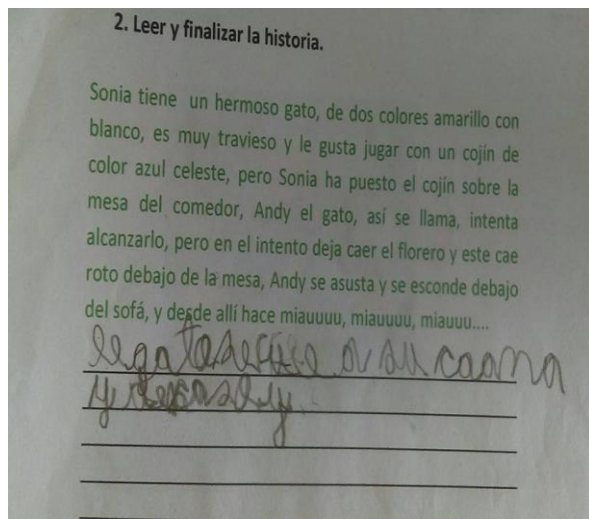 2. Leer y finalizar la historia.
Sonia tiene un hermoso gato, de dos colores amarillo con
blanco, es muy travieso y le gusta jugar con un cojín de
color azul celeste, pero Sonia ha puesto el cojín sobre la
mesa del comedor, Andy el gato, así se llama, intenta
alcanzarlo, pero en el intento deja caer el florero y este cae
roto debajo de la mesa, Andy se asusta y se esconde debajo
del sofá, y desde allí hace miauuuu, miauuuu, miauuu....
a su caama
y